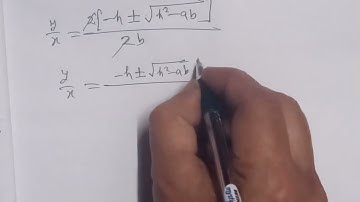 y/x = 2[-h ± √h²-ab] / 2b
y/x = -h ± √h²-ab